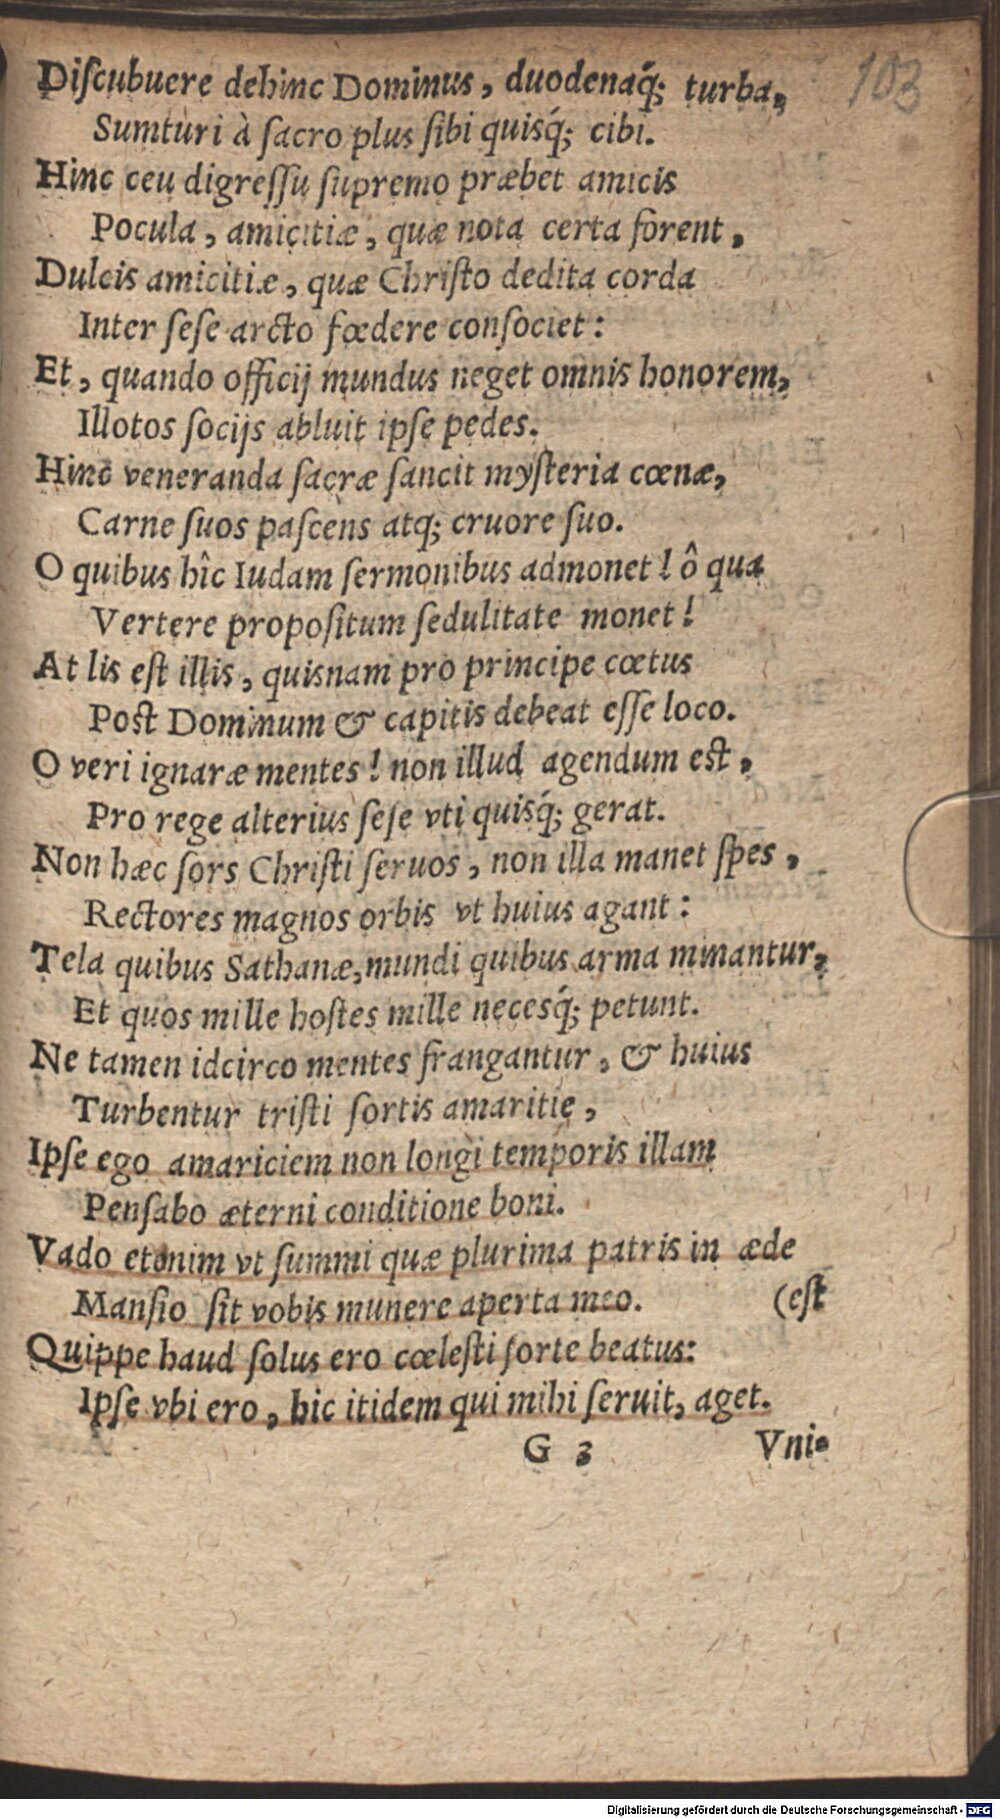 103
Diſcubuere dehinc Dominus, duodenaq́; turba,
Sumturi à ſacro plus ſibi quisq́; cibi.
Hinc ceu digreſſu ſupremo præbet amicis
Pocula, amicitiæ, quæ nota certa forent,
Dulcis amicitiæ, quæ Chriſto dedita corda
Inter ſeſe arcto fœdere conſociet:
Et, quando officij mundus neget omnis honorem,
Illotos ſocijs abluit ipſe pedes.
Hinc veneranda ſacræ ſancit myſteria cœnæ,
Carne ſuos paſcens atq; cruore ſuo.
O quibus hîc Iudam ſermonibus admonet! ô qua
Vertere propoſitum ſedulitate monet!
At lis eſt illis, quisnam pro principe cœtus
Poſt Dominum & capitis debeat eſſe loco.
O veri ignaræ mentes! non illud agendum eſt,
Pro rege alterius ſeſe vti quisq́; gerat.
Non hæc ſors Chriſti ſeruos, non illa manet ſpes,
Rectores magnos orbis vt huius agant:
Tela quibus Sathanæ, mundi quibus arma minantur,
Et quos mille hoſtes mille necesq́; petunt.
Ne tamen idcirco mentes frangantur, & huius
Turbentur triſti ſortis amaritie,
Ipſe ego amariciem non longi temporis illam
Penſabo æterni conditione boni.
Vado etenim vt ſummi quæ plurima patris in æde
Manſio ſit vobis munere aperta meo. (eſt
Quippe haud ſolus ero cœleſti ſorte beatus:
Ipſe vbi ero, hic itidem qui mihi ſeruit, aget.
G 3 Vni-
Digitalisierung gefördert durch die Deutsche Forschungsgemeinschaft - DFG